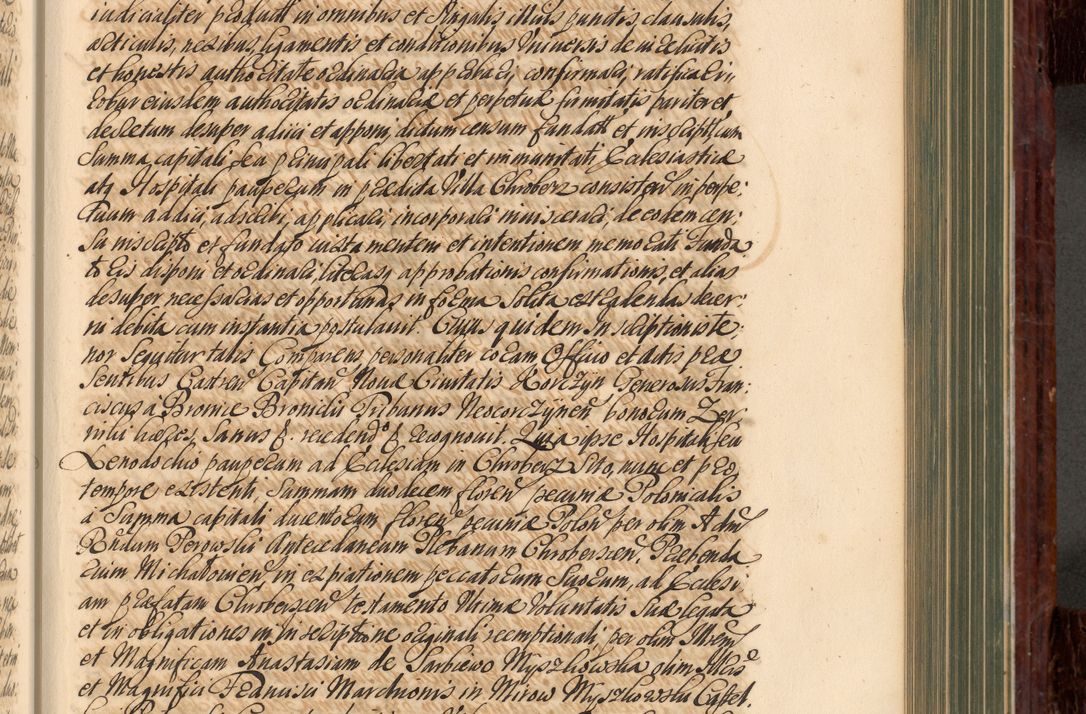 iudicialiter productt in omnibus et singulis illius punctis, clausulis,
articulis, nexibus, ligamentis et conditionibus Universis de
et honestis authoritate ordinaria approbari, confirmari, ratificari,
robur eiusdem authoritatis ordinariæ et perpetuæ firmitatis pariter et
decretum desuper adiici et apponi, dictum censum fundatt et inscriptum
Summa capitali seu principali libertati et immunitati Ecclesiasticæ
atq Hospitali pauperum in prædicta Villa Chroberz consisten in perpe-
tuum addici, adscribi, applicari, incorporari, inviscerari, de eodem cen-
su inscripto et fundato iuxta mentem et intentionem memorati Funda
toris disponi et ordinari, literasq approbationis confirmationis, et alias
desuper necessarias et opportunas in forma solita extraden das decer-
ni debita cum instantia postulavit. Cuius quidem Inscriptionis te-
nor sequitur talis Comparens personaliter coram Officio et Actis præ
sentibus Castren Capitan Novæ Civitatis Korczyn Generosus Fran-
ciscus à Bronice Bronicki Tribunus Neocorczynen bonorum Zer-
niki hæres, Sanus &. recedendo & recognovit. Quia ipse Hospitali seu
Xenodochio pauperum ad Ecclesiam in Chroberz Sito, nunc et pro
tempore existenti, Summam duodecem floren pecuniæ Polonicalis
à Summa capitali ducentorum floren pecuniæ Polon per olim Adm
Rndum Perowski Antecedaneum Plebanum Chroberzen, Præbenda
rium Michałovien, in expiationem peccatorum Suorum, ad Ecclesi
am præfatam Chroberzen testamento Ultimæ Voluntatis Suæ legata
et in obligationes in Inscriptione originali reemptionali, per olim Illrem
et Magnificam Anastasiam de Sarbiewo Myszkowska olim Illris
et Magnifici Francisci Marchionis in Mirow Myszkowski Castel.